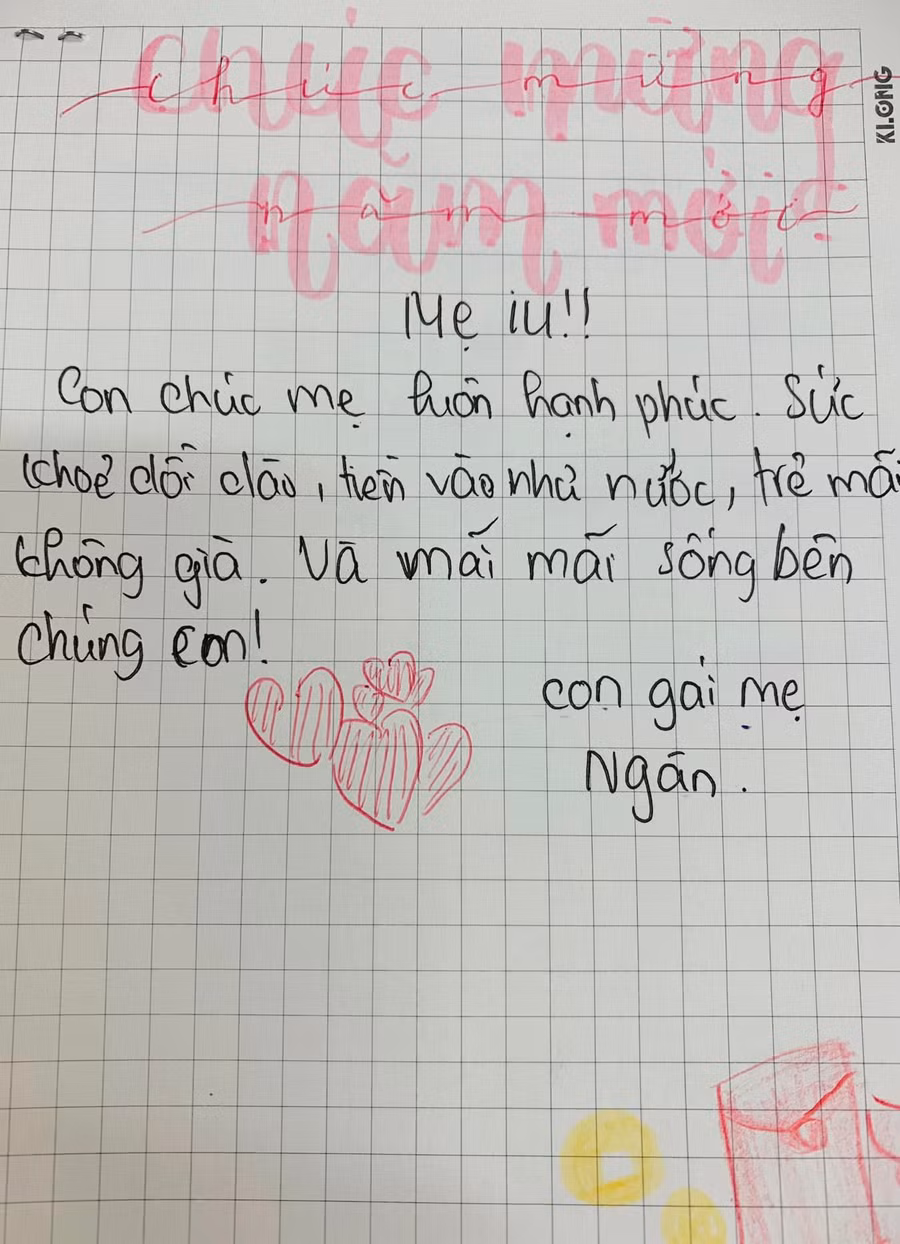 chúc mừng
năm mới
KLONG
Mẹ iu!!
Con chúc mẹ luôn hạnh phúc. Sức
khoẻ dồi dào, tiền vào như nước, trẻ mãi
không già. Và mãi mãi sống bên
chúng con!
con gái mẹ
Ngân.